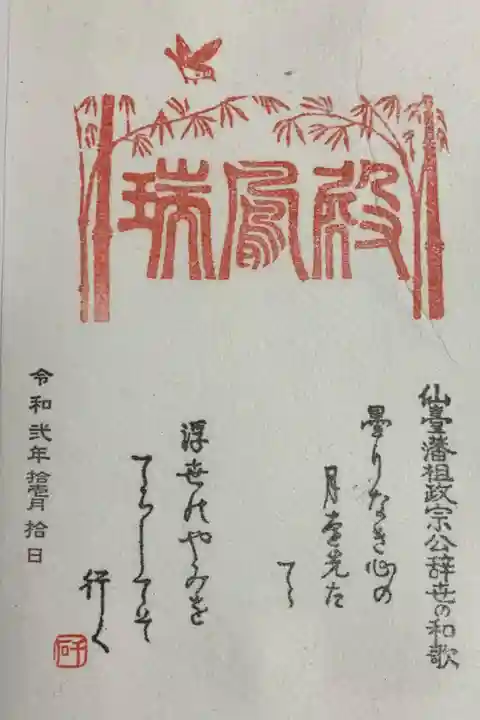 瑞鳳殿
仙臺藩祖政宗公辞世の和歌
曇りなき心の
月を先た
てゝ
浮世のやみを
てらしてそ
行く
令和弐年 拾壱月 拾日